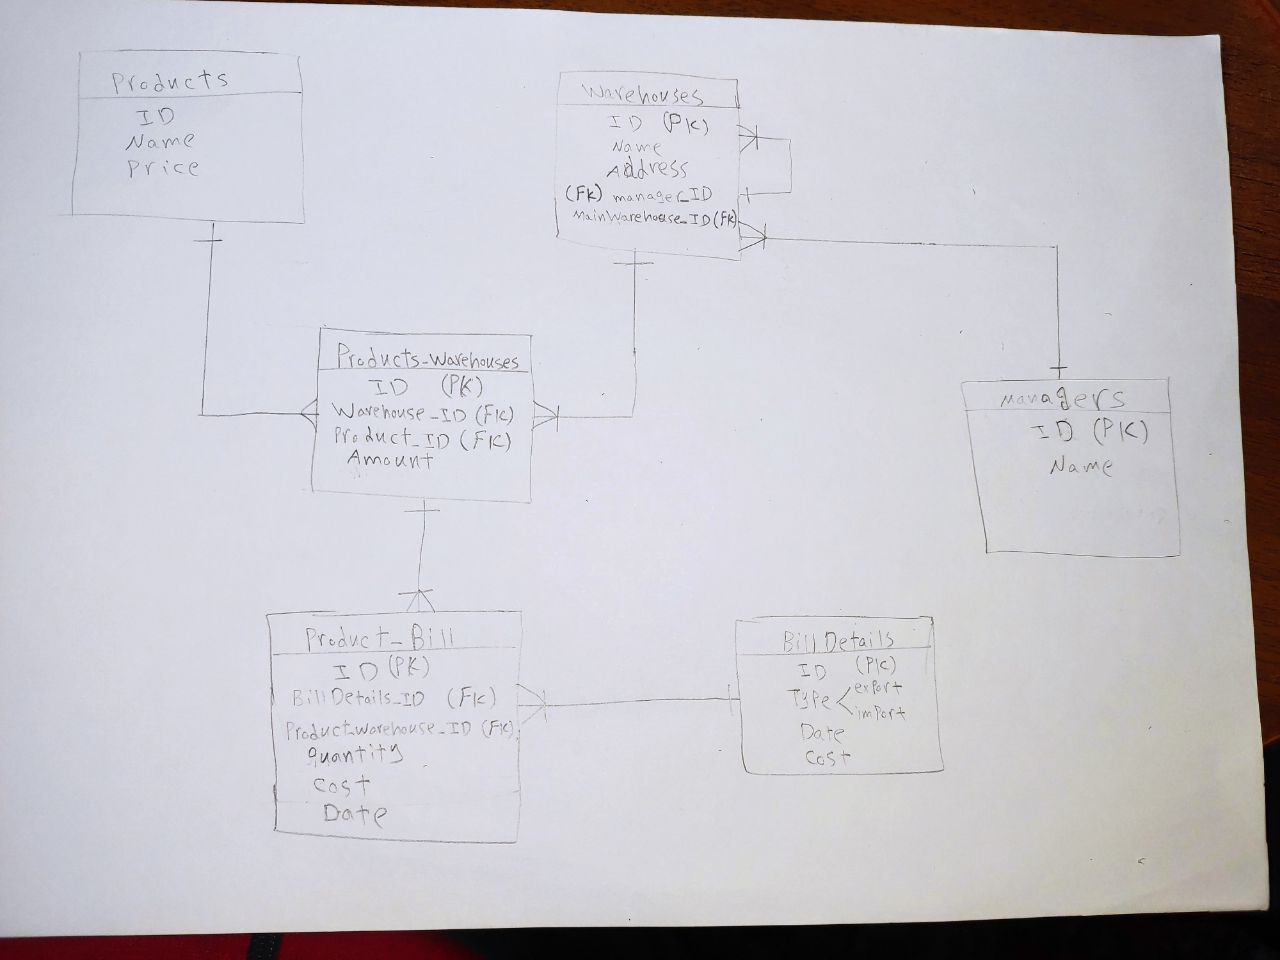 Products
ID
Name
Price
Warehouses
ID (PK)
Name
Address
(FK) manager_ID
MainWarehouse_ID (FK)
Products-Warehouses
ID (PK)
Warehouse_ID (FK)
Product_ID (FK)
Amount
Managers
ID (PK)
Name
Product_Bill
ID (PK)
BillDetails_ID (FK)
Product_Warehouse_ID (FK)
quantity
Cost
Date
BillDetails
ID (PK)
Type export
import
Date
Cost